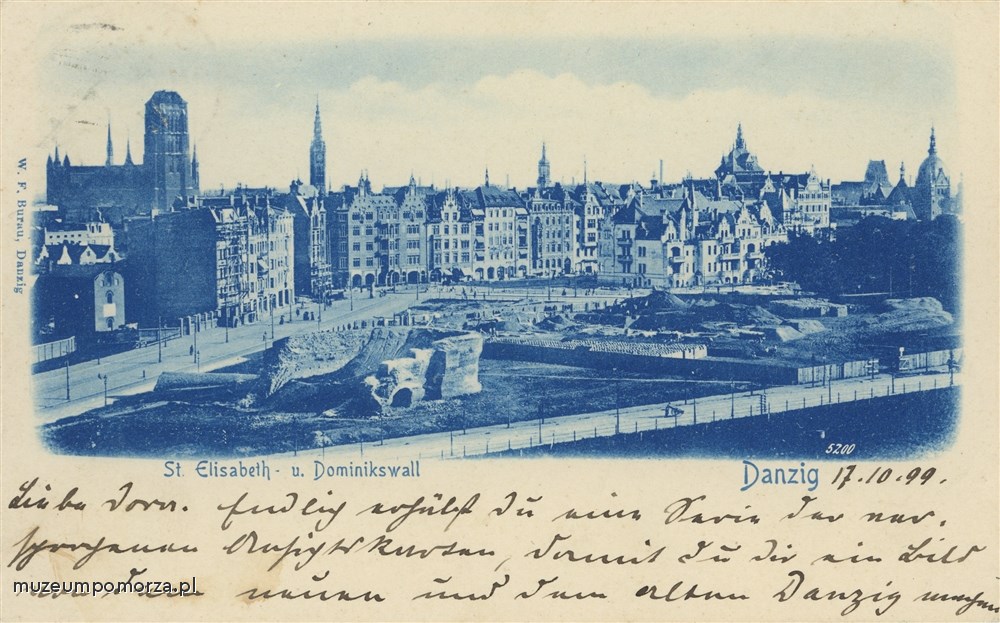 W. F. Burau, Danzig
5200
St. Elisabeth- u. Dominikswall
Danzig 17.10.99.
Liebe Dora. Endlich erhälst Du eine Serie der ver-
sprochenen Ansichtskarten, damit Du Dir ein Bild
neuen und dem alten Danzig machen
muzeumpomorza.pl